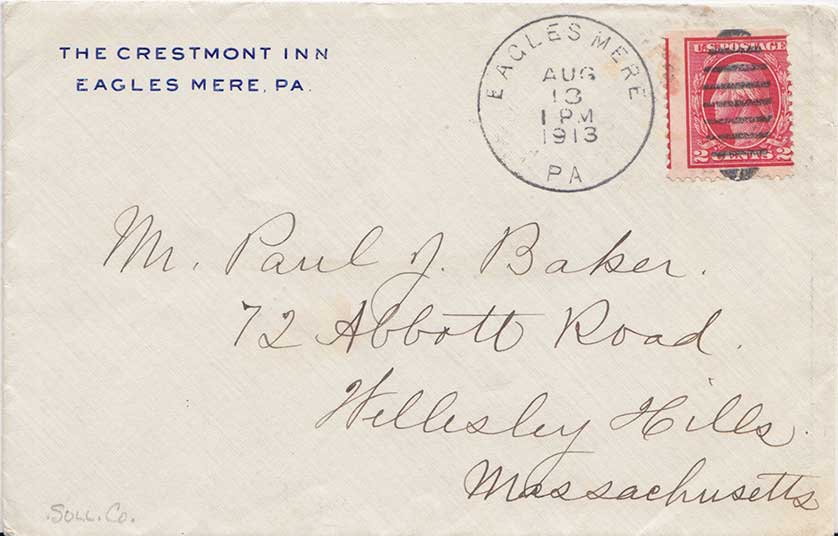 THE CRESTMONT INN
EAGLES MERE, PA.
EAGLES MERE
AUG
13
1 PM
1913
PA
U.S. POSTAGE
2 CENTS 2
Mr. Paul J. Baker.
72 Abbott Road.
Wellesley Hills.
Massachusetts
.SULL.CO.